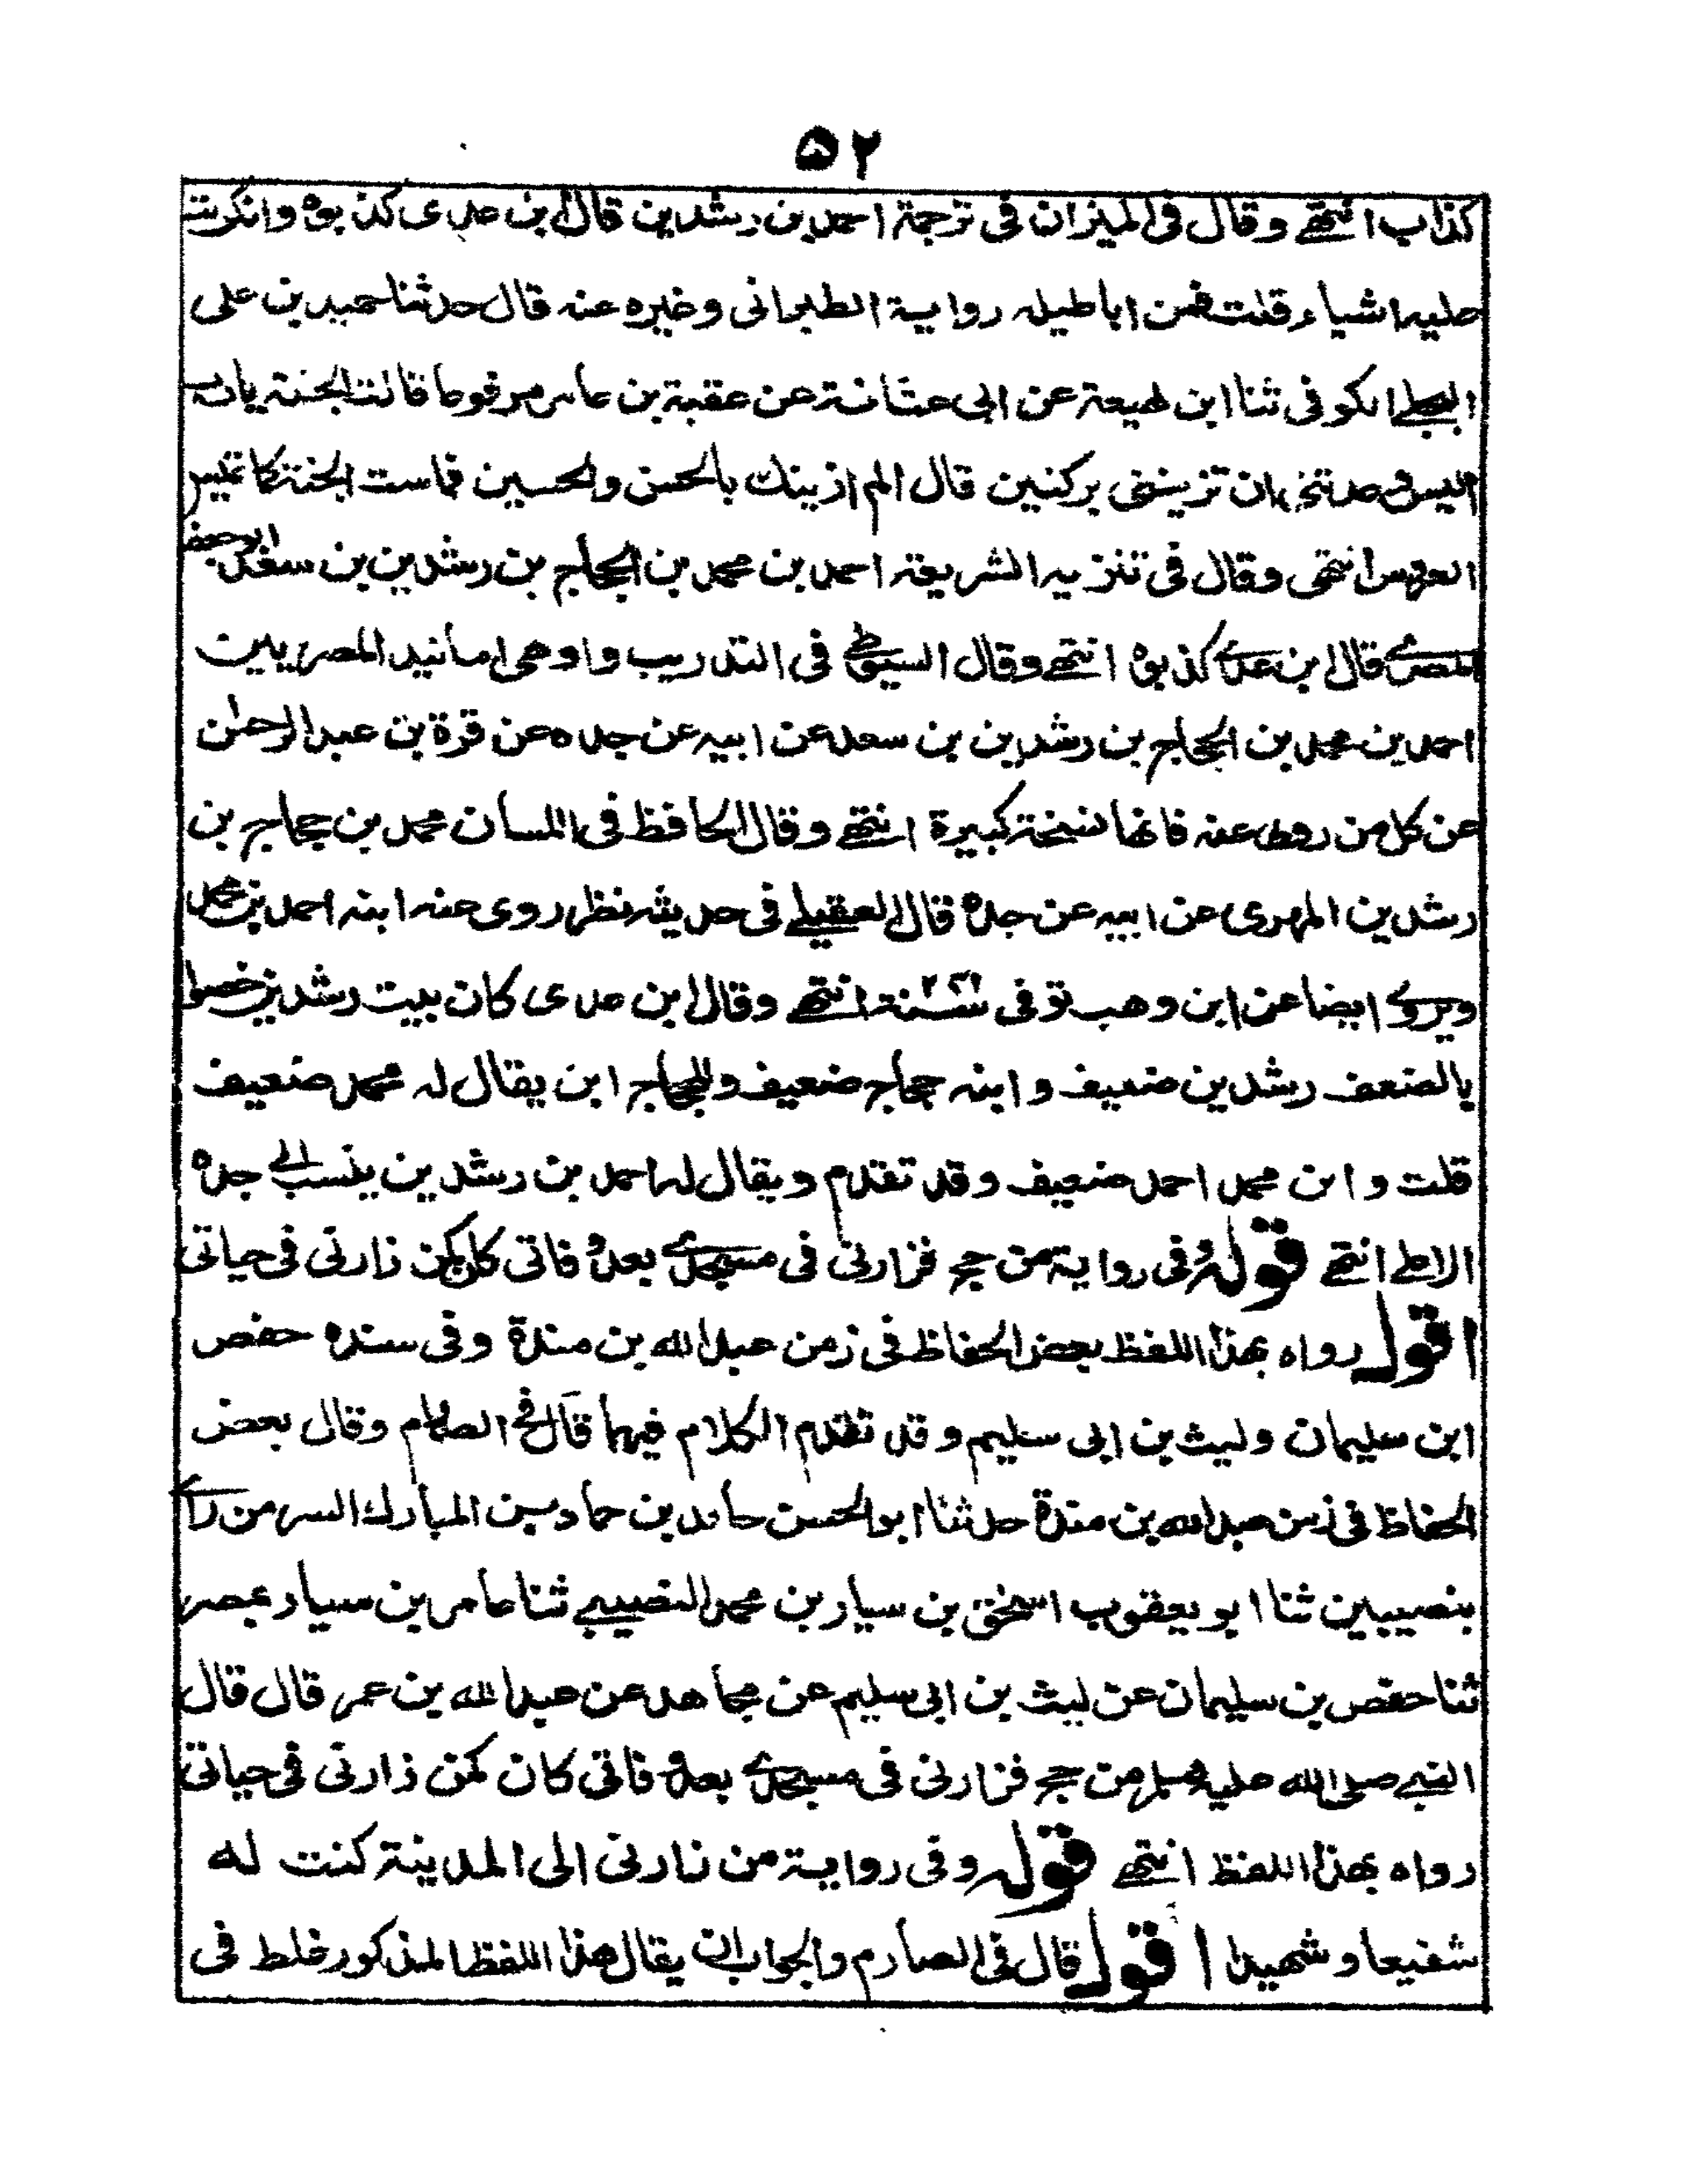 ٥٢
كذاب انتهى وقال فى الميزان فى ترجمة احمد بن رشدين قال ابن عدى كذبوه وانكرت
عليه اشياء قلت فمن اباطيله رواية الطبرانى وغيره عنه قال حدثنا حميد بن على
البجلى الكوفى ثنا ابن لهيعة عن ابى عشانة عن عقبة بن عامر مرفوعا قالت الجنة يارب
اليس وعدتنى ان تزيننى بركنين قال الم ازينك بالحسن والحسين فماست الجنة كما تميس
العروس انتهى وقال فى تنزيه الشريعة احمد بن محمد بن الحجاج بن رشدين بن سعد ابو جعفر
المصرى قال ابن عدى كذبوه انتهى وقال السيوطى فى التدريب واوهى اسانيد المصريين
احمد بن محمد بن الحجاج بن رشدين بن سعد عن ابيه عن جده عن قرة بن عبد الرحمن
عن كل من روى عنه فانها نسخة كبيرة انتهى وقال الحافظ فى اللسان محمد بن حجاج بن
رشدين المهرى عن ابيه عن جده قال العقيلى فى حديثه نظر روى عنه ابنه احمد بن محمد
ويروى ايضا عن ابن وهب توفى سنة انتهى وقال ابن عدى كان بيت رشدين خصوا
بالضعف رشدين ضعيف وابنه حجاج ضعيف وللحجاج ابن يقال له محمد ضعيف
قلت وابن محمد احمد ضعيف وقد تقدم ويقال له احمد بن رشدين ينسب الى جده
الاعلى انتهى قوله وفى رواية من حج فزارنى فى مسجدى بعد وفاتى كان كمن زارنى فى حياتى
اقول رواه بهذا اللفظ بعض الحفاظ فى زمن عبد الله بن مندة وفى سنده حفص
ابن سليمان وليث بن ابى سليم وقد تقدم الكلام فيهما قال فى الصارم وقال بعض
الحفاظ فى زمن عبد الله بن مندة حدثنا ابو الحسن حامد بن حماد بن المبارك السر من راى
بنصيبين ثنا ابو يعقوب اسحق بن سيار بن محمد النصيبى ثنا عامر بن سيار عبصر
ثنا حفص بن سليمان عن ليث بن ابى سليم عن مجاهد عن عبد الله بن عمر قال قال
النبى صلى الله عليه وسلم من حج فزارنى فى مسجدى بعد وفاتى كان كمن زارنى فى حياتى
رواه بهذا اللفظ انتهى قوله وفى رواية من زارنى الى المدينة كنت له
شفيعا وشهيدا اقول قال فى الصارم والجواب ان يقال هذا اللفظ المذكور غلط فى